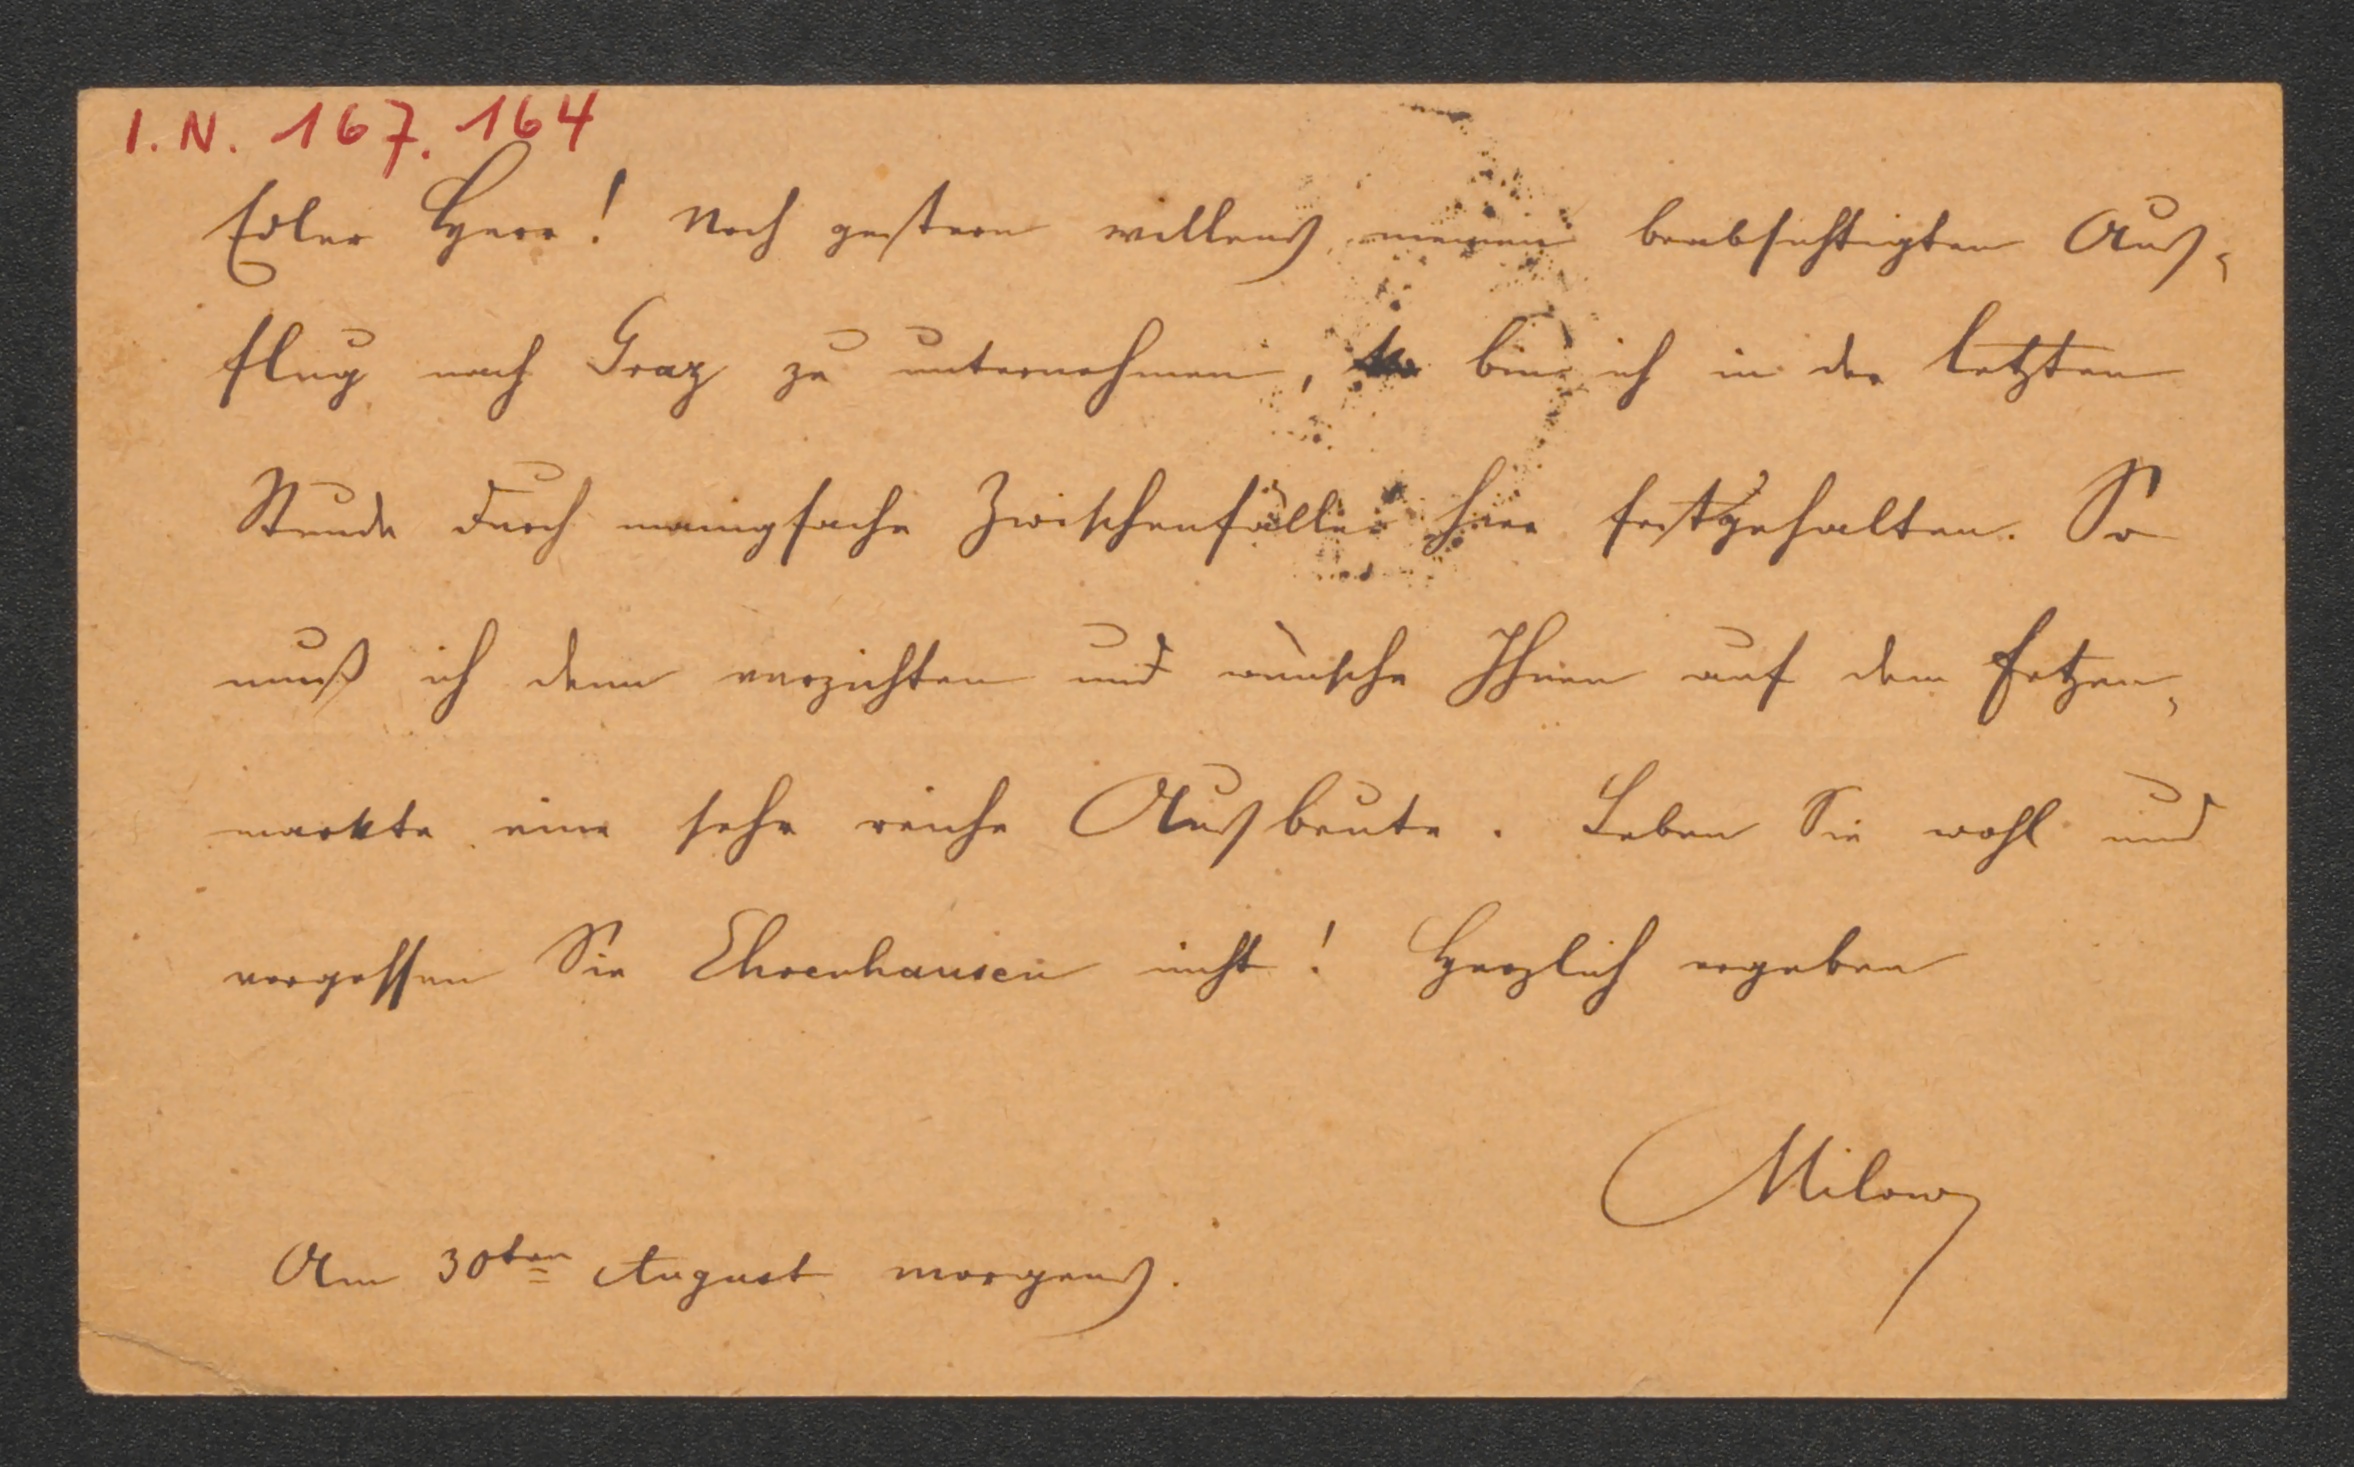 I. N. 167.164
Edler Herr! Noch gestern willens, meinen beabsichtigten Aus-
flug nach Graz zu unternehmen, bin ich in der letzten
Stunde durch mannigfache Zwischenfälle hier festgehalten. So
muß ich denn verzichten und wünsche Ihnen auf dem Fetzen-
markte eine sehr reiche Ausbeute. Leben Sie wohl und
vergessen Sie Ehrenhausen nicht! Herzlich ergeben
Milow
Am 30ten August morgens.